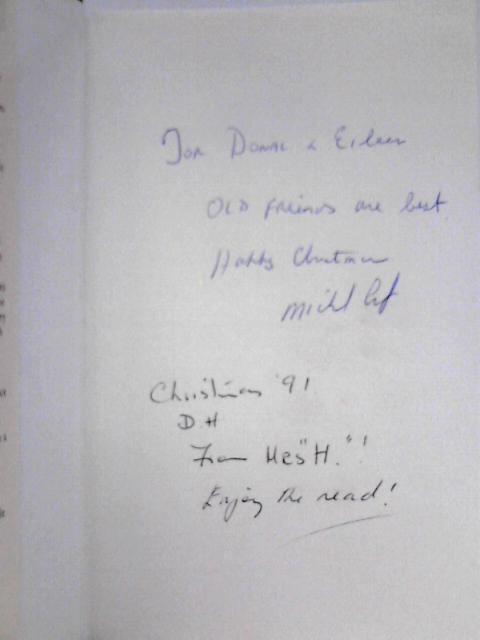 For Donal & Eileen
OLD friends are best
Happy Christmas
Christmas '91
D H
From Mrs "H."!
Enjoy the read!